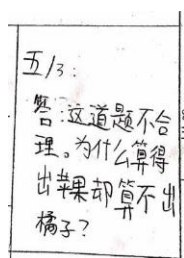 五/3:
答:这道题不合
理。为什么算得
出苹果却算不出
橘子?